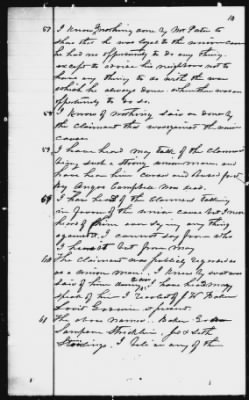 10
57 I know of nothing done by Mr Pate to
show that he was loyal to the union cause
he had no oppertunity to do any thing
except to advise his neighbors not to
have any thing to do with the war
which he always done when there was an
oppertunity to do so.
58 I know of nothing said or done by
the claimant this was against the union
cause
59 I have heard may talk of the claimant
being such a strong union man and
have hear him cursed and abused for it
by Angus Campbell now dead.
I have heard the claimant talking
in favor of the union cause but I never
heard of him ever say any thing
against it I cannot say from who
I heard it but from may
60 The claimant was publicly regarded
as a union man. I know by what was
said of him during war I have heard may
speak of him I reckon of J. W. Baker
Levit & present
61 The above named Baker
Sampson Stricklin, Jo & Seth
I tell in any of the